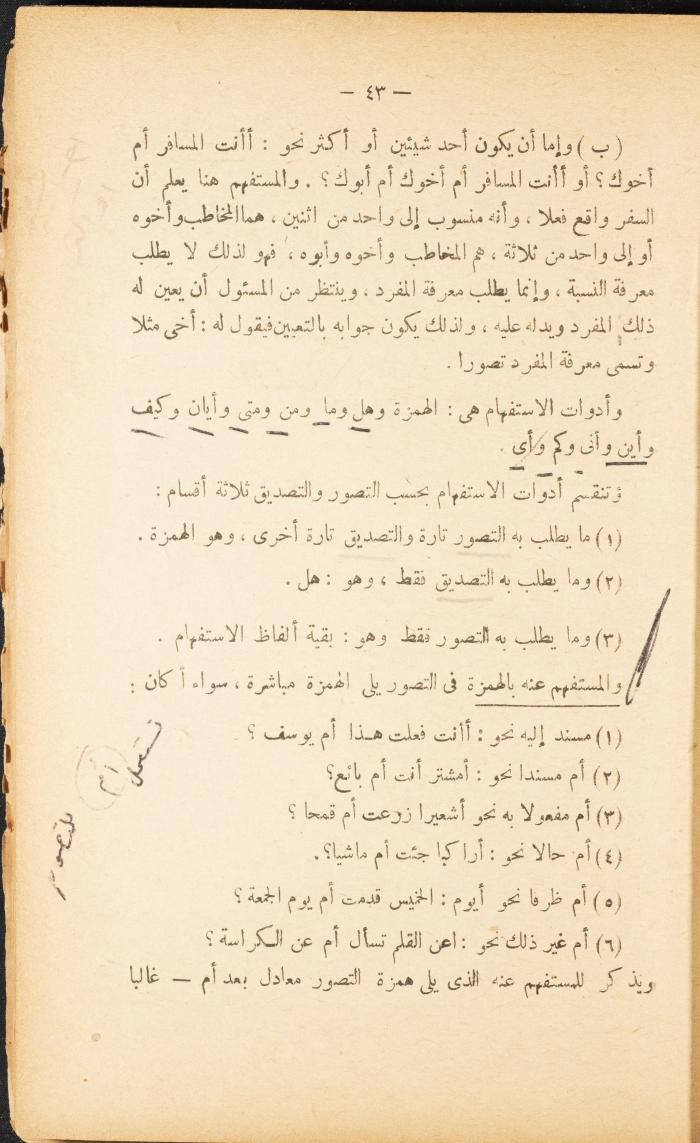 — ٤٣ —
(ب) وإما أن يكون أحد شيئين أو أكثر نحو : أأنت المسافر أم
أخوك؟ أو أأنت المسافر أم أخوك أم أبوك؟ . والمستفهم هنا يعلم أن
السفر واقع فعلا ، وأنه منسوب إلى واحد من اثنين ، هما المخاطب وأخوه
أو إلى واحد من ثلاثة ، هم المخاطب وأخوه وأبوه ، فهو لذلك لا يطلب
معرفة النسبة ، وإنما يطلب معرفة المفرد ، وينتظر من المسئول أن يعين له
ذلك المفرد ويدله عليه ، ولذلك يكون جوابه بالتعيين فيقول له : أخى مثلا
وتسمى معرفة المفرد تصورا .
وأدوات الاستفهام هى : الهمزة وهل وما ومن ومتى وأيان وكيف
وأين وأنى وكم وأى .
وتنقسم أدوات الاستفهام بحسب التصور والتصديق ثلاثة أقسام :
(١) ما يطلب به التصور تارة والتصديق تارة أخرى ، وهو الهمزة .
(٢) وما يطلب به التصديق فقط ، وهو : هل .
(٣) وما يطلب به التصور فقط وهو : بقية ألفاظ الاستفهام .
والمستفهم عنه بالهمزة فى التصور يلى الهمزة مباشرة ، سواء أكان :
(١) مسند إليه نحو : أأنت فعلت هذا أم يوسف ؟
(٢) أم مسندا نحو : أمشتر أنت أم بائع؟
(٣) أم مفعولا به نحو أشعيرا زرعت أم قمحا ؟
(٤) أم حالا نحو : أراكبا جئت أم ماشيا؟.
(٥) أم ظرفا نحو أيوم : الخميس قدمت أم يوم الجمعة ؟
(٦) أم غير ذلك نحو : اعن القلم تسأل أم عن الكراسة ؟
ويذكر للمستفهم عنه الذى يلى همزة التصور معادل بعد أم — غالبا
أم